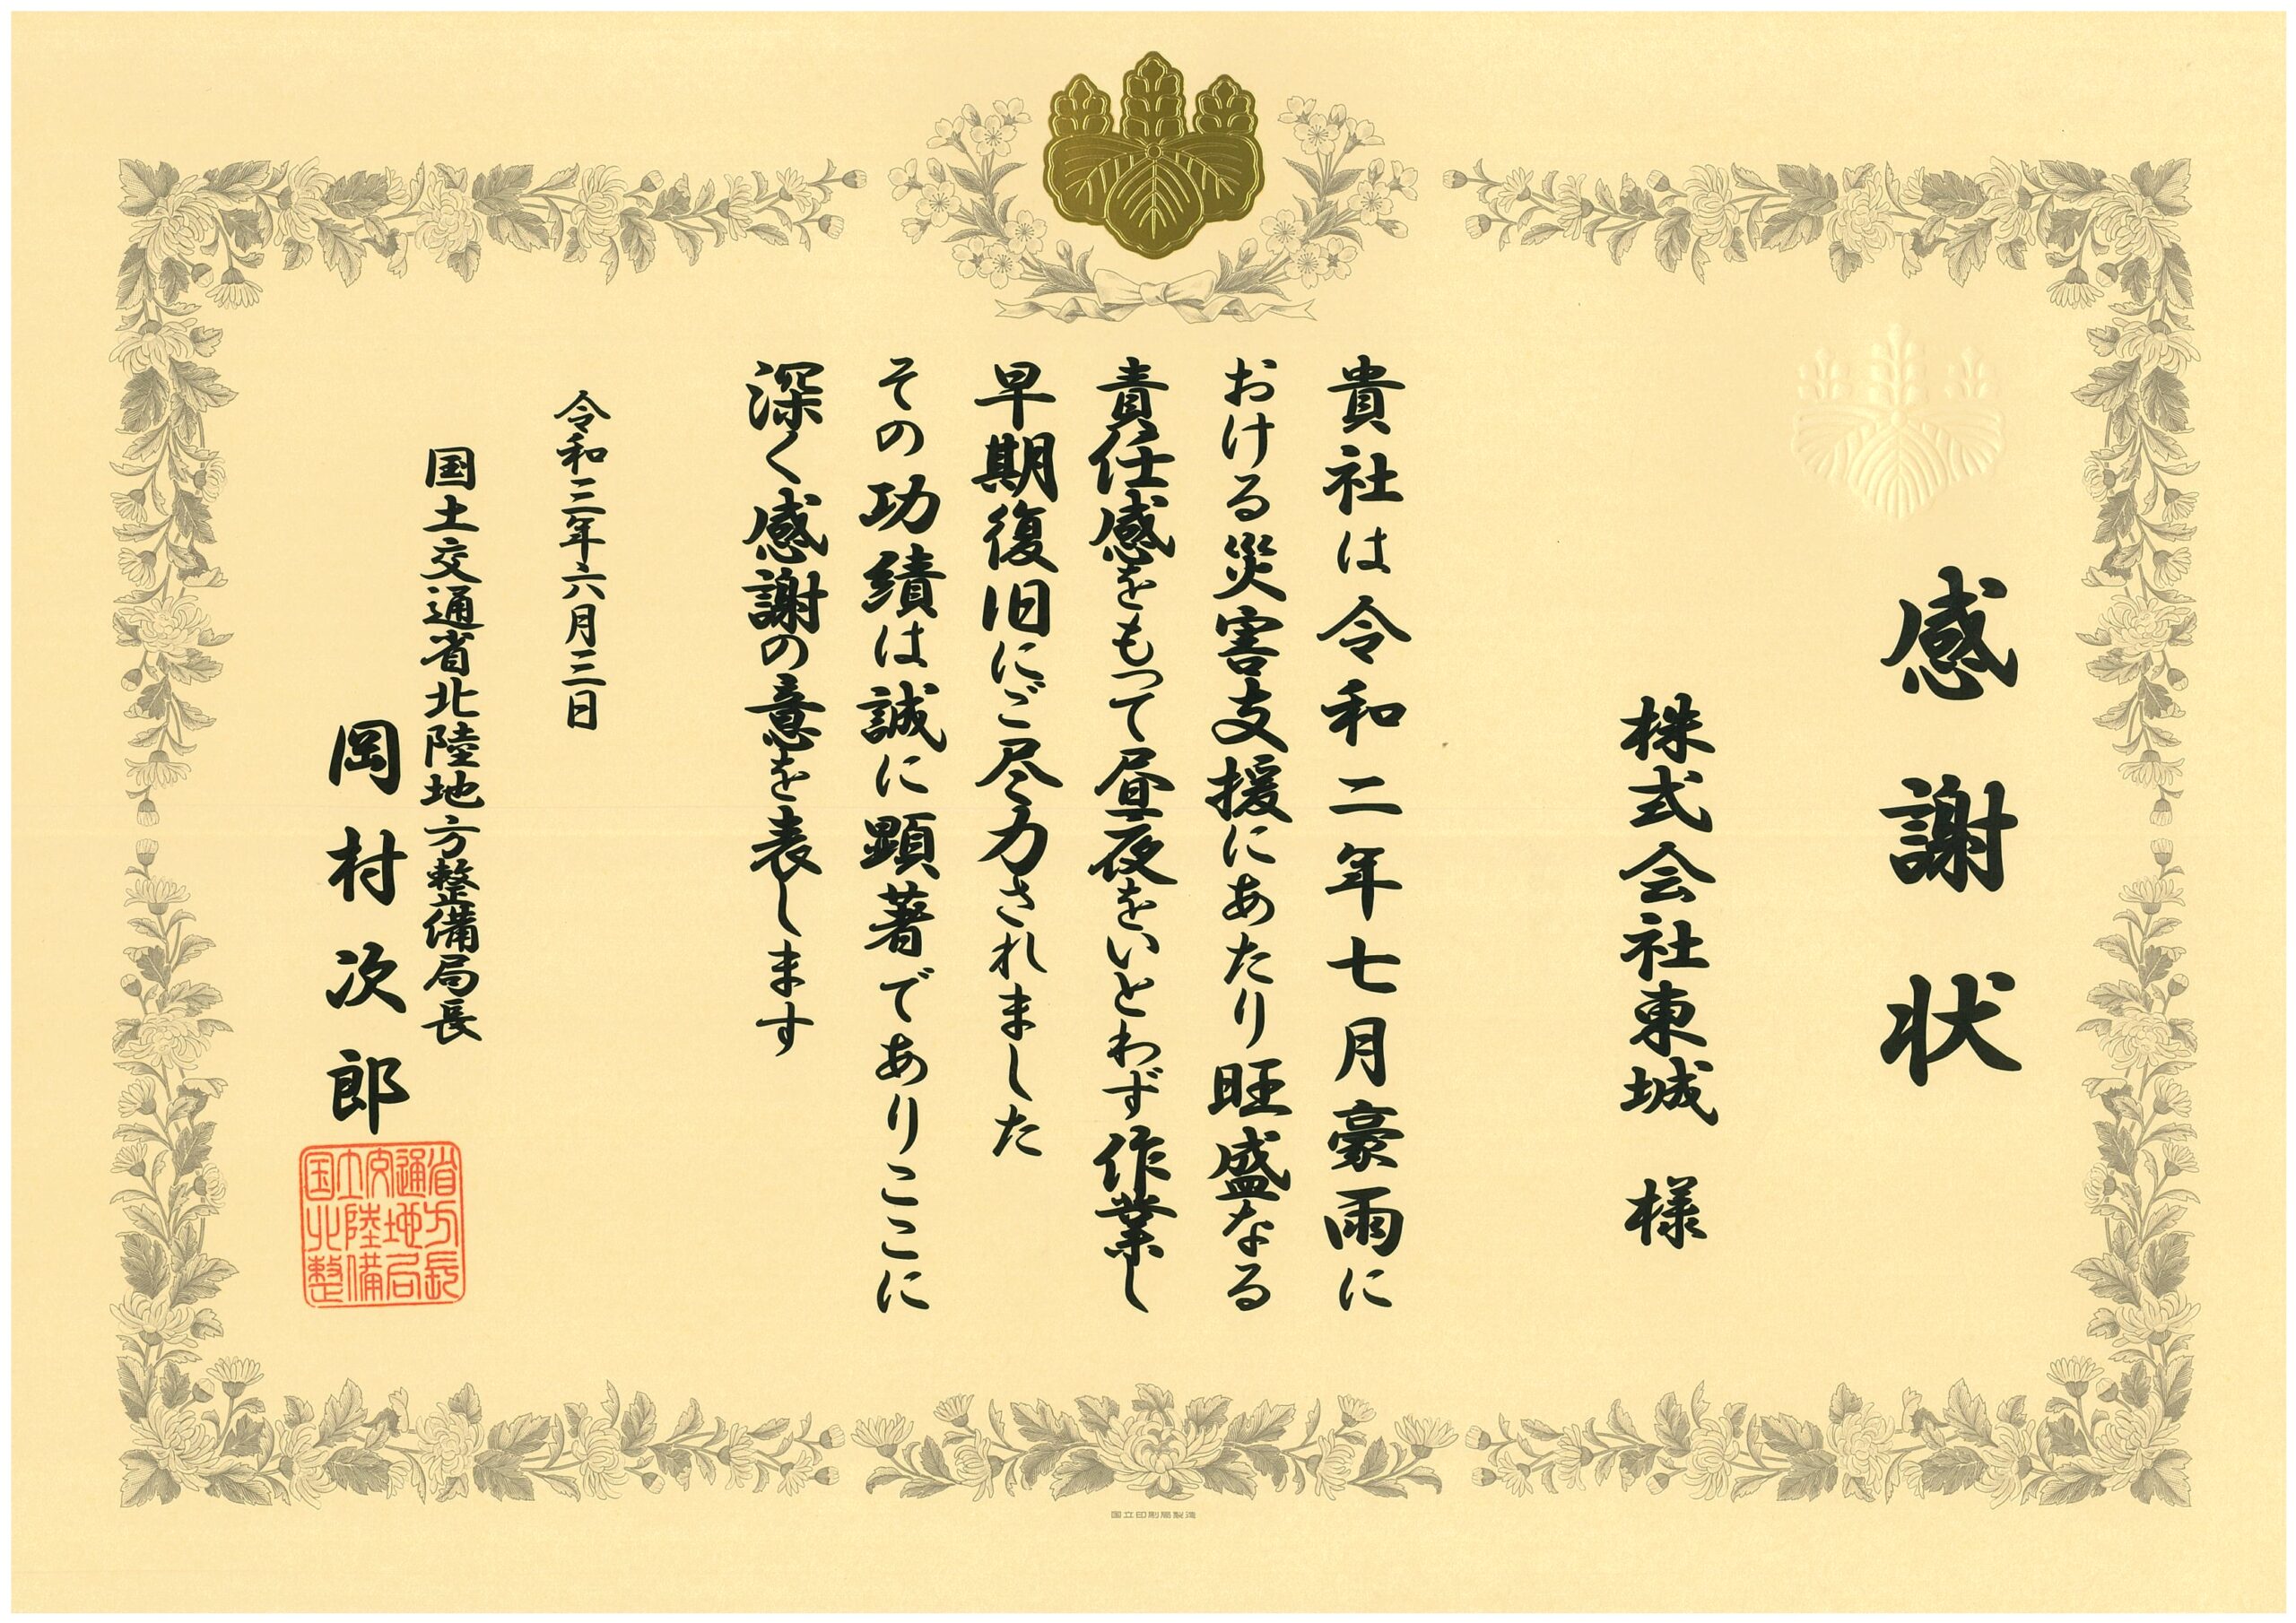 感謝状
株式会社東城 様
貴社は令和二年七月豪雨に
おける災害支援にあたり旺盛なる
責任感をもって昼夜をいとわず作業し
早期復旧にご尽力されました
その功績は誠に顕著でありここに
深く感謝の意を表します
令和三年六月三日
国土交通省北陸地方整備局長
岡村次郎
国立印刷局製造